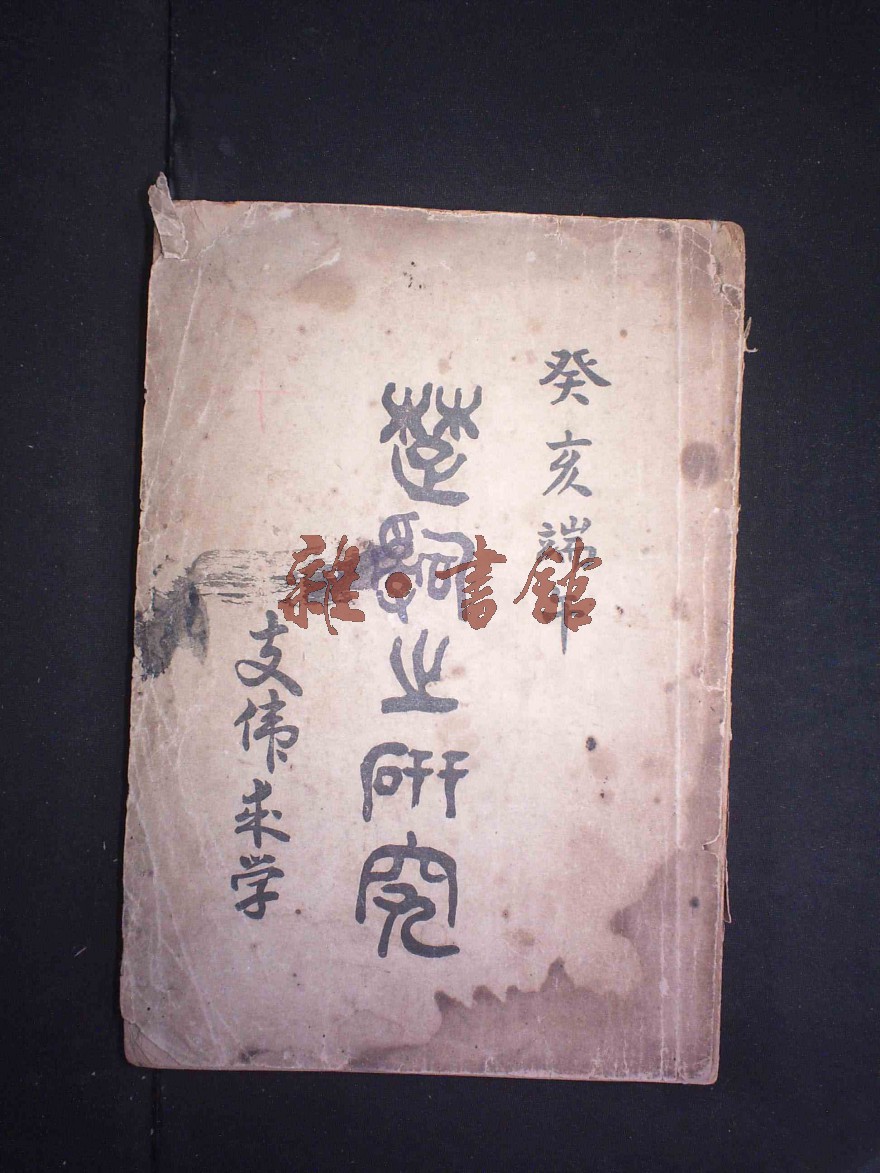 癸亥端午
楚辭之研究
支伟成学
雜·書館